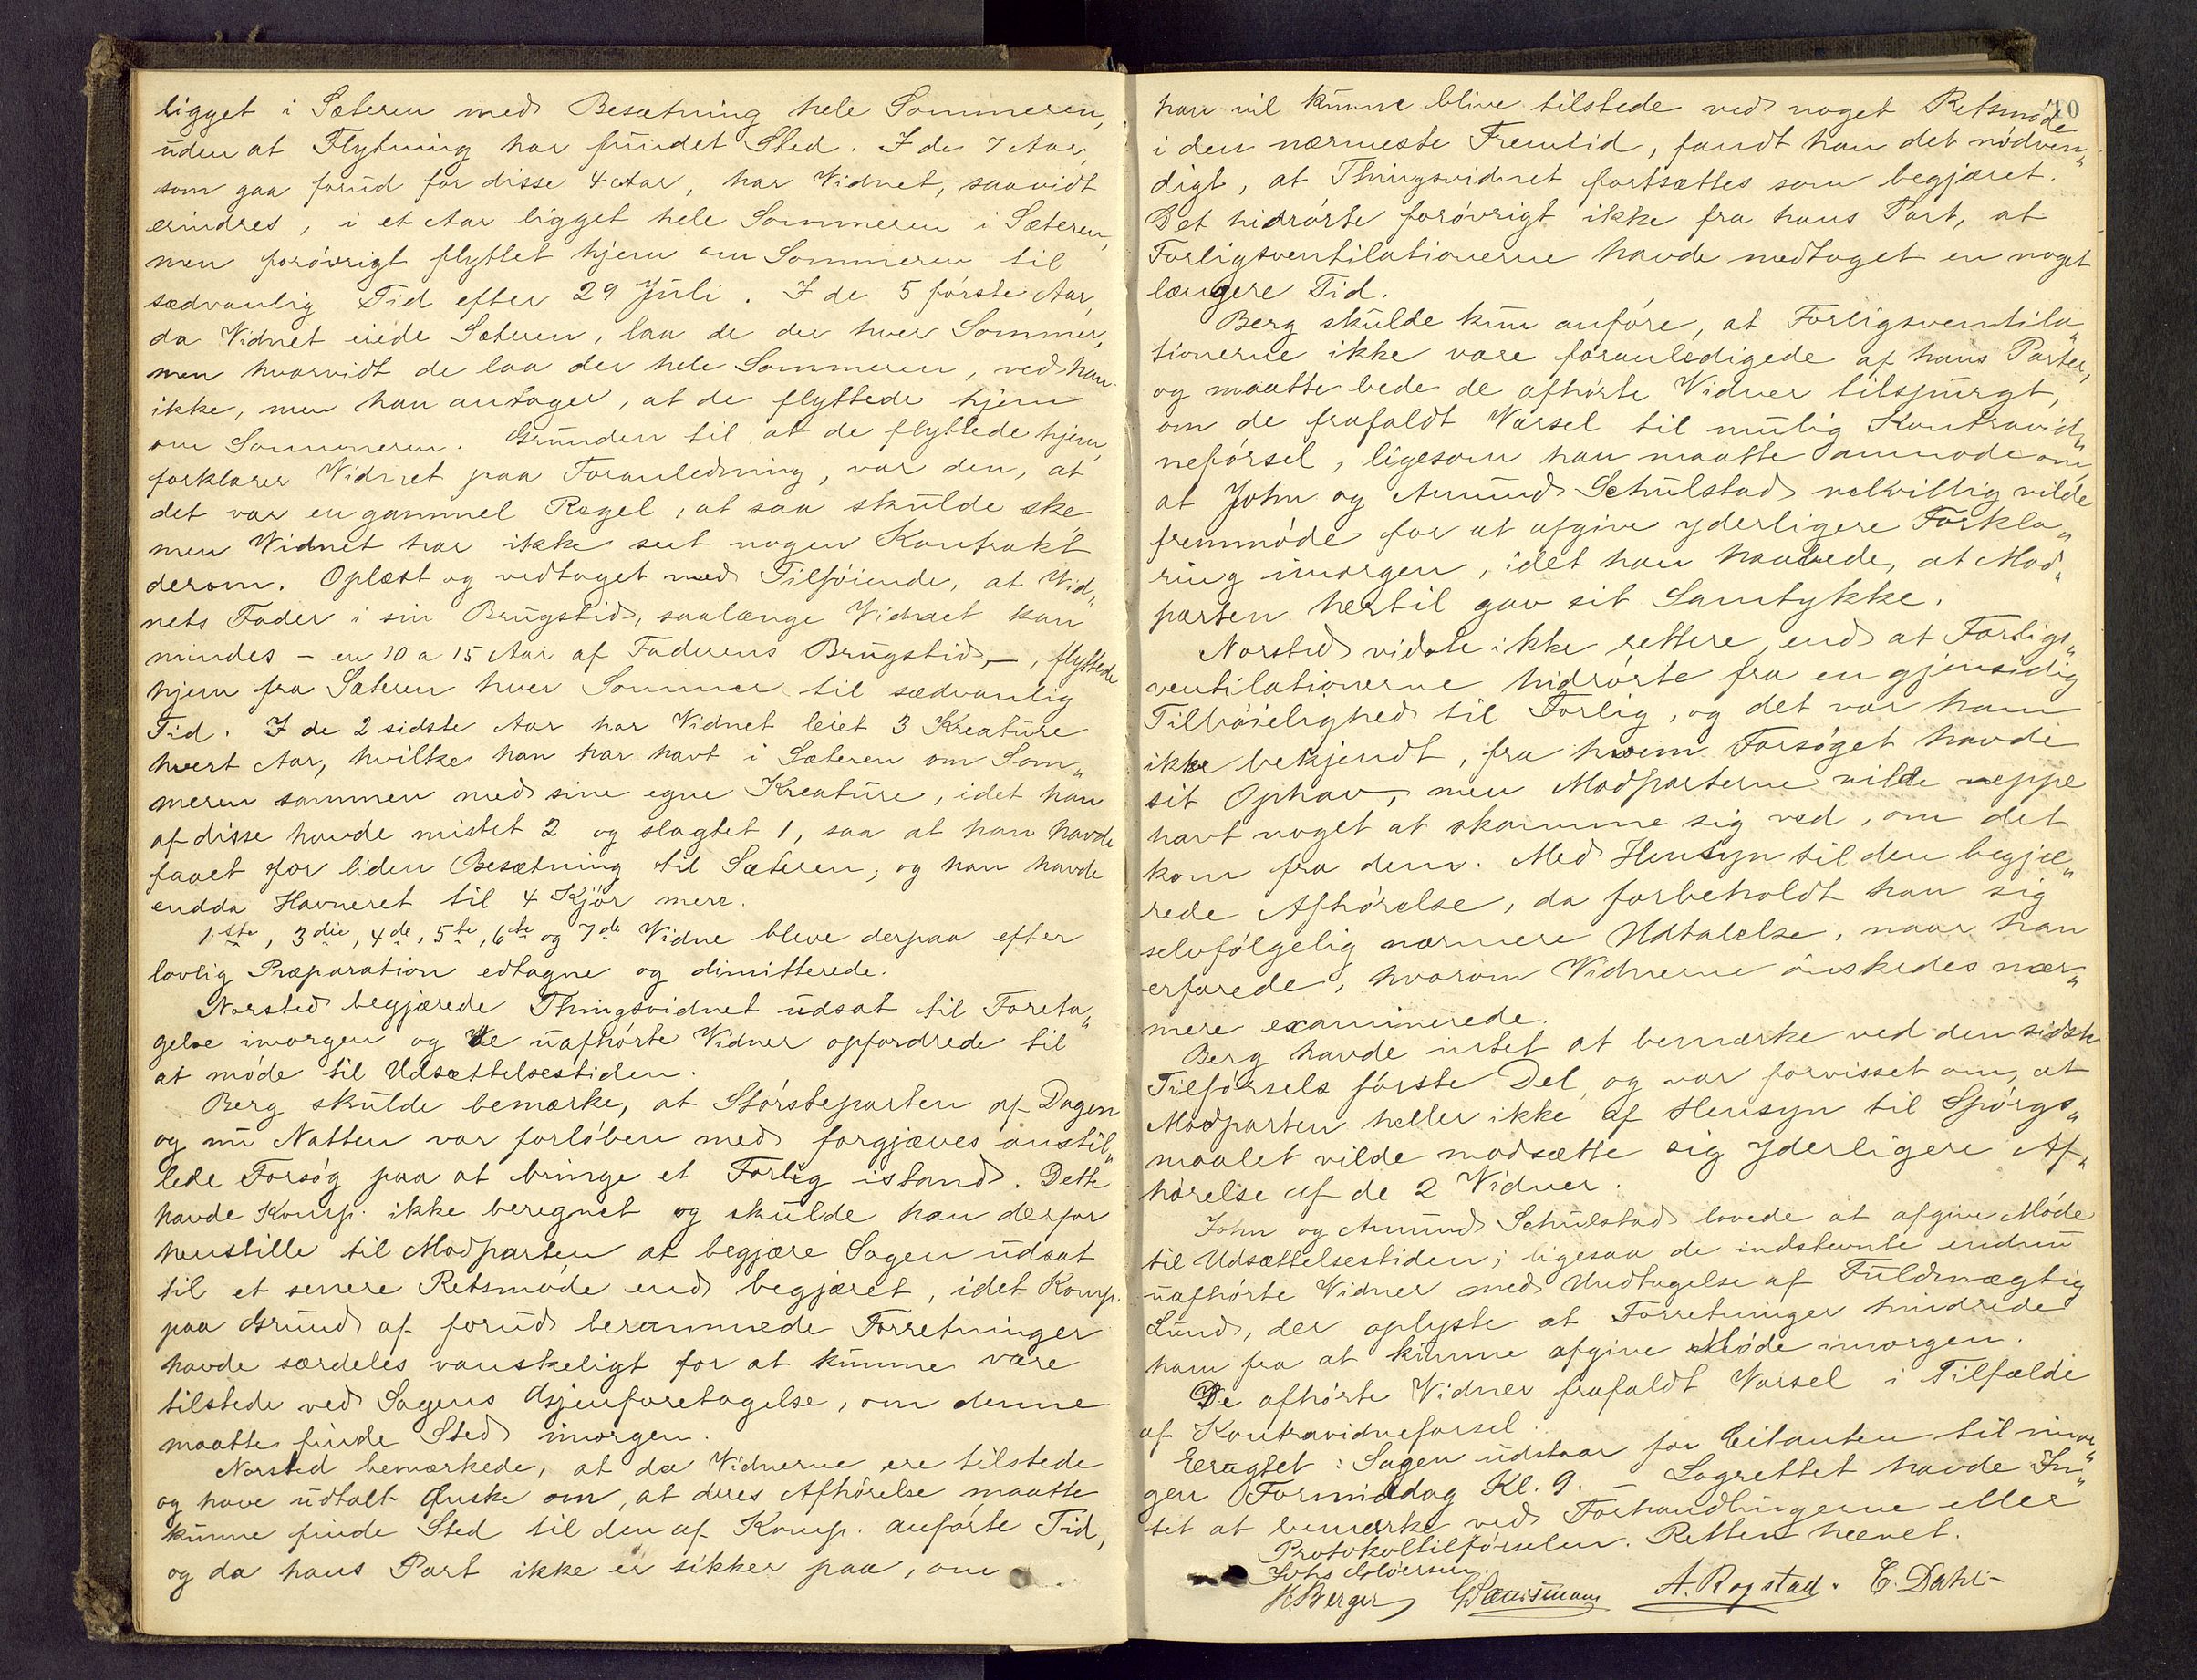 ligget i Sæteren med Besætning hele Sommeren,
uden at Flytning har fundet Sted. I de 7 Aar,
som gaa forud for disse 4 Aar, har Vidnet, saavidt
erindres, i et Aar ligget hele Sommeren i Sæteren,
men forøvrigt flyttet hjem om Sommeren til
sædvanlig Tid efter 29 Juli. I de 5 første Aar,
da Vidnet eiede Sæteren, laa de der hver Sommer,
men hvorvidt de laa der hele Sommeren, ved han
ikke, men han antager, at de flyttede hjem
om Sommeren. Grunden til at de flyttede hjem,
forklarer Vidnet paa Foranledning, var den, at
det var en gammel Regel, at saa skulde ske,
men Vidnet har ikke seet nogen Kontrakt
derom. Oplæst og vedtaget med Tilføiende, at Vid„
nets Fader i sin Brugstid, saalænge Vidnet kan
mindes – en 10 a 15 Aar af Faderens Brugstid –, flyttede
hjem fra Sæteren hver Sommer til sædvanlig
Tid. I de 2 sidste Aar har Vidnet leiet 3 Kreature
hvert Aar, hvilke han har havt i Sæteren om Som„
meren sammen med sine egne Kreature, idet han
af disse havde mistet 2 og slagtet 1, saa at han havde
faaet for liden Besætning til Sæteren, og han havde
endda Havneret til 4 Kjør mere.
1ste, 3die, 4de, 5te, 6te og 7de Vidne bleve derpaa efter
lovlig Præparation edtagne og dimitterede.
Norsted begjærede Thingsvidnet udsat til Foreta„
gelse imorgen og de uafhørte Vidner opfordrede til
at møde til Udsættelsestiden.
Berg skulde bemærke, at Størsteparten af Dagen
og nu Natten var forløben med forgjæves anstil„
lede Forsøg paa at bringe et Forlig istand. Dette
havde Komp. ikke beregnet og skulde han derfor
henstille til Modparten at begjære Sagen udsat
til et senere Retsmøde end begjæret, idet Komp.
paa Grund af forud berammede Forretninger
havde særdeles vanskeligt for at kunne være
tilstede ved Sagens Gjenforetagelse, om denne
maatte finde Sted imorgen.
Norsted bemærkede, at da Vidnerne ere tilstede
og have udtalt Ønske om, at deres Afhørelse maatte
kunne finde Sted til den af Komp. anførte Tid,
og da hans Part ikke er sikker paa, om
10
han vil kunne blive tilstede ved noget Retsmøde
i den nærmeste Fremtid, fandt han det nødven„
digt, at Thingsvidnet fortsættes som begjæret.
Det hidrørte forøvrigt ikke fra hans Part, at
Forligsventilationerne havde medtaget en noget
længere Tid.
Berg skulde kun anføre, at Forligsventila„
tionerne ikke vare foranledigede af hans Parter,
og maatte bede de afhørte Vidner tilspurgt,
om de frafaldt Varsel til mulig Kontravid„
neførsel, ligesom han maatte anmode om,
at John og Amund Schulstad velvillig vilde
fremmøde for at afgive yderligere Forkla„
ring imorgen, idet han haabede, at Mod„
parten hertil gav sit Samtykke.
Norsted vidste ikke rettere, end at Forligs„
ventilationerne hidrørte fra en gjensidig
Tilbøielighed til Forlig, og det var ham
ikke bekjendt, fra hvem Forsøget havde
sit Ophav, men Modparterne vilde neppe
havt noget at skamme sig ved, om det
kom fra dem. Med Hensyn til den begjæ„
rede Afhørelse, da forbeholdt han sig
selvfølgelig nærmere Udtalelse, naar han
erfarede, hvorom Vidnerne ønskedes nær„
mere examinerede.
Berg havde intet at bemærke ved den sidste
Tilførsels første Del, og var forvisset om, at
Modparten heller ikke af Hensyn til Spørgs„
maalet vilde modsætte sig yderligere Af„
hørelse af de 2 Vidner.
John og Amund Schulstad lovede at afgive Møde
til Udsættelsestiden; ligesaa de indstevnte endnu
uafhørte Vidner med Undtagelse af Fuldmægtig
Lund, der oplyste at Forretninger hindrede
ham fra at kunne afgive Møde imorgen.
De afhørte Vidner frafaldt Varsel i Tilfælde
af Kontravidneførsel.
Eragtet: Sagen udstaar for Citanten til imor„
gen Formiddag Kl. 9. – Lagrettet havde In„
tet at bemærke ved Forhandlingerne eller
Protokoltilførselen. Retten hævet.
H. Berger A. Rogstad. E. Dahl